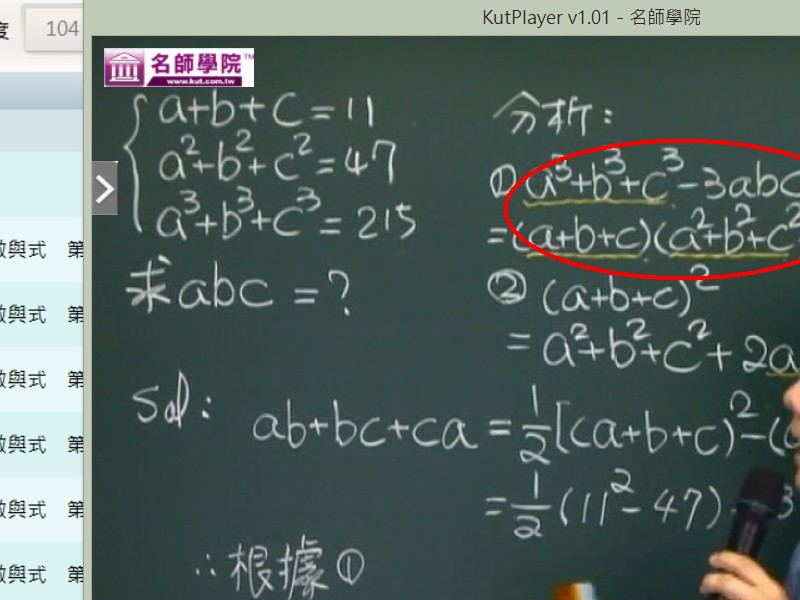 KutPlayer v1.01 - 名師學院
度 104
名師學院™
www.kut.com.tw
a+b+c=11
a²+b²+c²=47
a³+b³+c³=215
求abc=?
分析:
① a³+b³+c³-3abc
=(a+b+c)(a²+b²+c²
② (a+b+c)²
=a²+b²+c²+2a
Sol:
ab+bc+ca=½[(a+b+c)²-(
=½(11²-47)
∴根據①
與式 第
與式 第
與式 第
與式 第
與式 第
與式 第